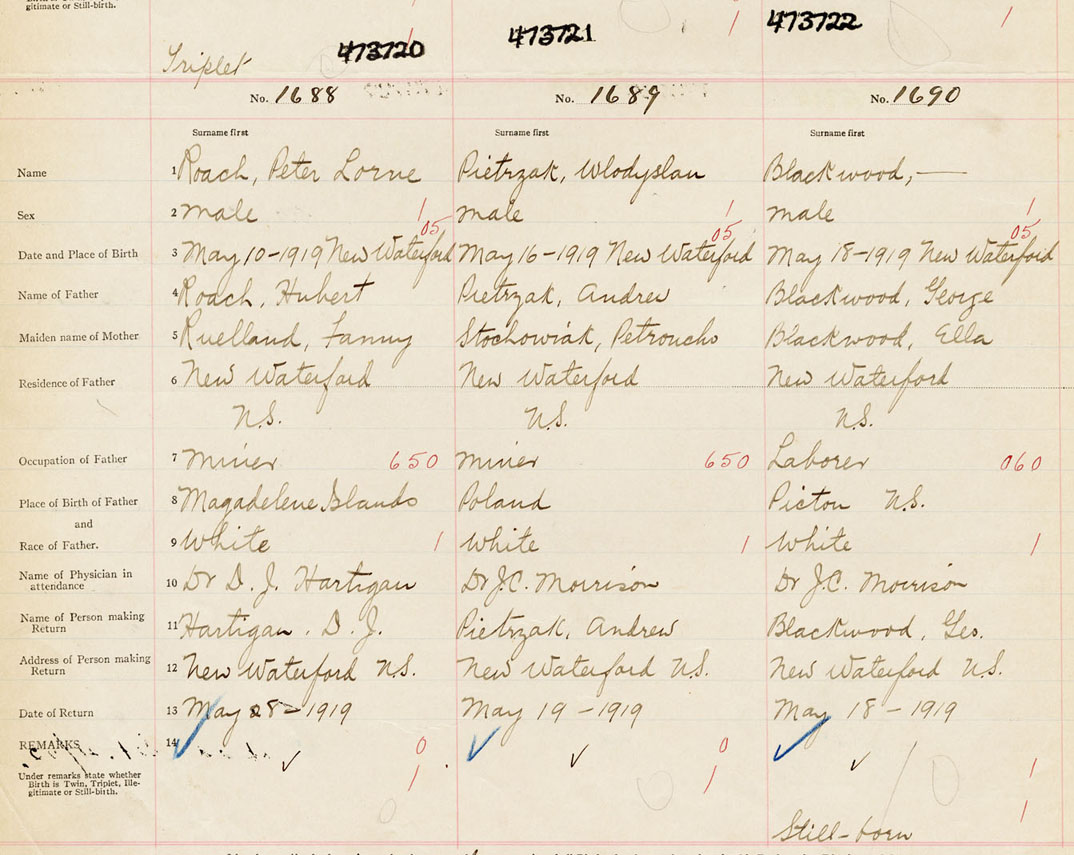 gitimate or Still-birth.
1 1 1
Triplet 473720 473721 473722
No. 1688 No. 1689 No. 1690
Surname first Surname first Surname first
Name 1 Roach, Peter Lorne Pietrzak, Wlodyslau Blackwood, —
Sex 2 male 1 male 1 male 1
05 05 05
Date and Place of Birth 3 May 10-1919 New Waterford May 16-1919 New Waterford May 18-1919 New Waterford
Name of Father 4 Roach, Hubert Pietrzak, Andrew Blackwood, George
Maiden name of Mother 5 Ruelland, Fanny Stochowiak, Petroucho Blackwood, Ella
Residence of Father 6 New Waterford New Waterford New Waterford
N.S. N.S. N.S.
Occupation of Father 7 Miner 650 Miner 650 Laborer 060
Place of Birth of Father 8 Magadelene Islands Poland Picton N.S.
and
Race of Father. 9 White 1 White 1 White 1
Name of Physician in
attendance 10 Dr D. J. Hartigan Dr J.C. Morrison Dr J.C. Morrison
Name of Person making
Return 11 Hartigan. D. J. Pietrzak, Andrew Blackwood, Geo.
Address of Person making
Return 12 New Waterford N.S. New Waterford N.S. New Waterford N.S.
Date of Return 13 May 28-1919 May 19-1919 May 18-1919
REMARKS 14 0 0 1
Under remarks state whether
Birth is Twin, Triplet, Ille-
gitimate or Still-birth. 1 1 1
Still-born